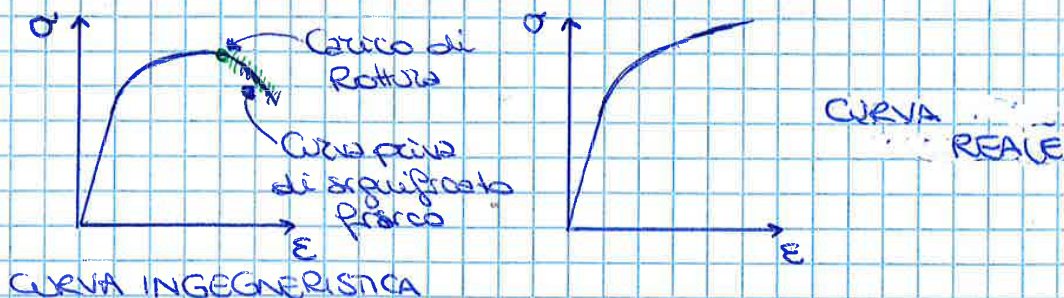 σ
Carico di
Rottura
Curva priva
di significato
fisico
ε
CURVA INGEGNERISTICA
σ
ε
CURVA
REALE